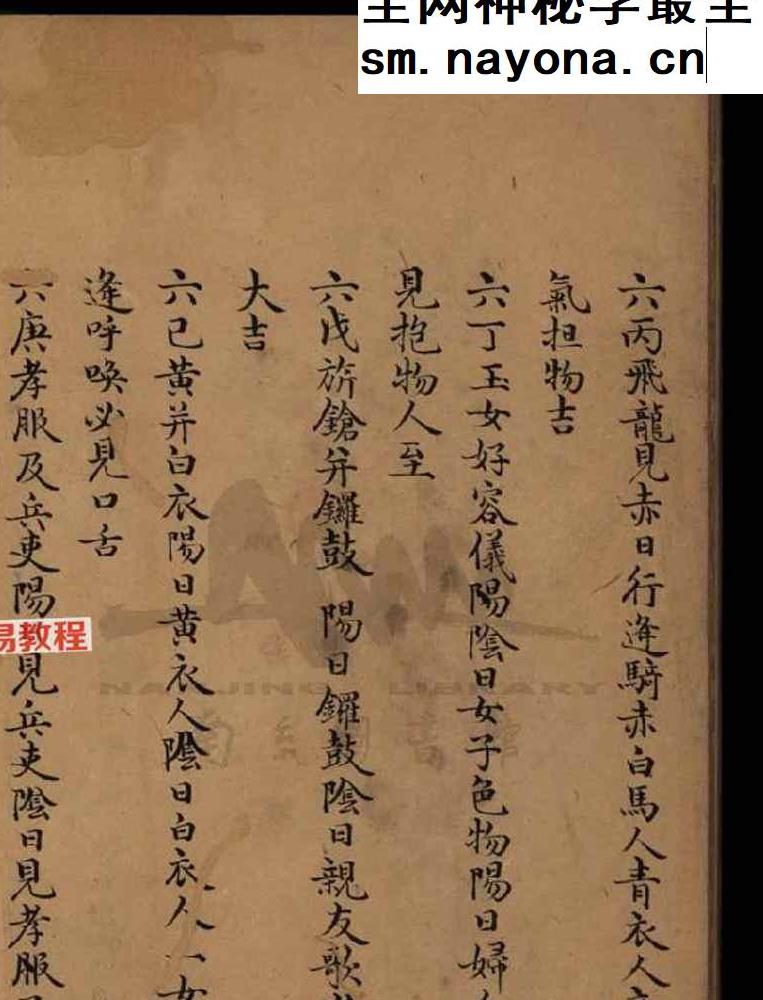 全网神秘学最全
sm.nayona.cn
六丙飛龍見赤日行逢騎赤白馬人青衣人
氣担物吉
六丁玉女好容儀陽陰日女子色物陽日婦
見抱物人至
六戊旂鎗并鑼鼓 陽日鑼鼓陰日親友歌
大吉
六己黄并白衣陽日黄衣人陰日白衣人一女
逢呼喚必見口舌
六庚孝服及兵吏陽 見兵吏陰日見孝服
易教程
NANJING LIBRARY
南京圖書館